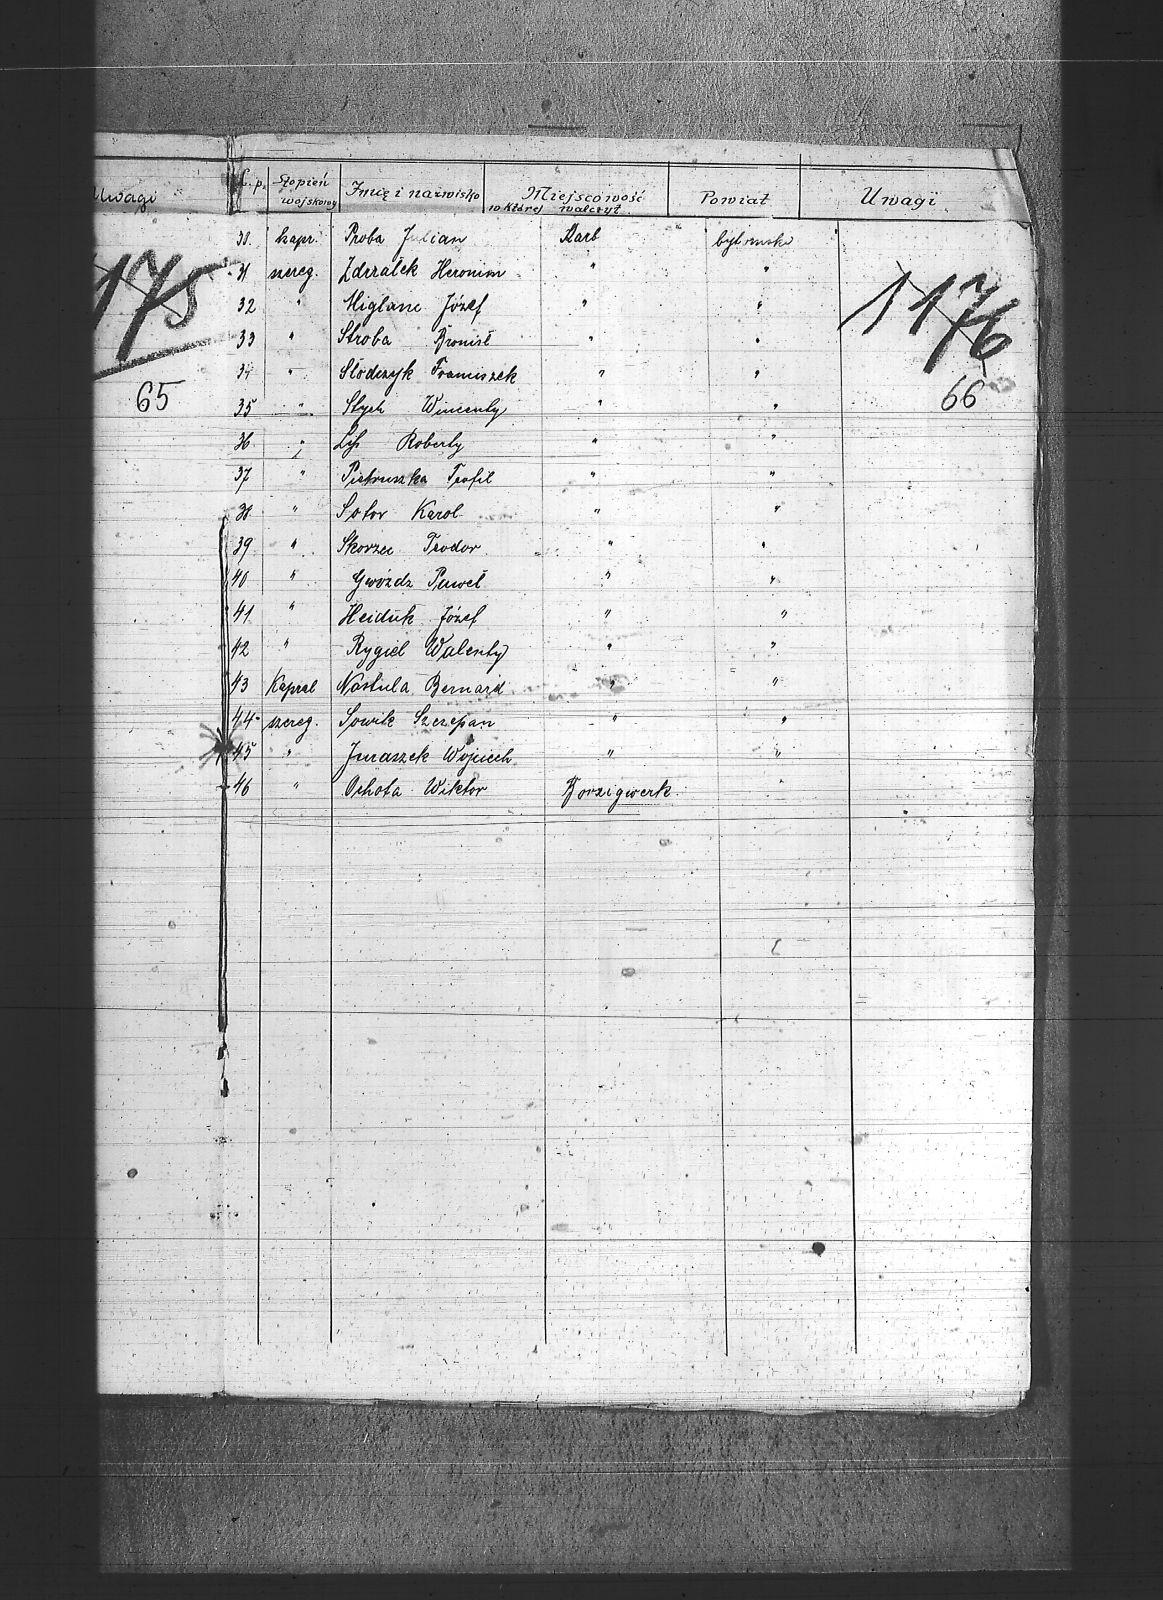 Uwagi
L.p. Stopień wojskowy Imię i nazwisko Miejscowość w której walczył Powiat Uwagi
30. kapr. Proba Julian Karb bytomski
31 szereg. Zdrzałek Heronim " "
32 " Miglanc Józef " "
33 " Stroba Bronisł " "
34 " Słodczyk Franciszek " "
35 " Stych Wincenty " "
36 " Lys Roberty " "
37 " Pietruszka Teofil " "
38 " Sotor Karol " "
39 " Skorzec Teodor " "
40 " Gwóźdz Paweł " "
41 " Heiduk Józef " "
42 " Rygiel Walenty " "
43 Kapral Nastula Bernard " "
44 szereg. Sowik Szczepan " "
45 " Juraszek Wojciech " "
46 " Ochota Wiktor Borzigwerk "
175
65
1176
66